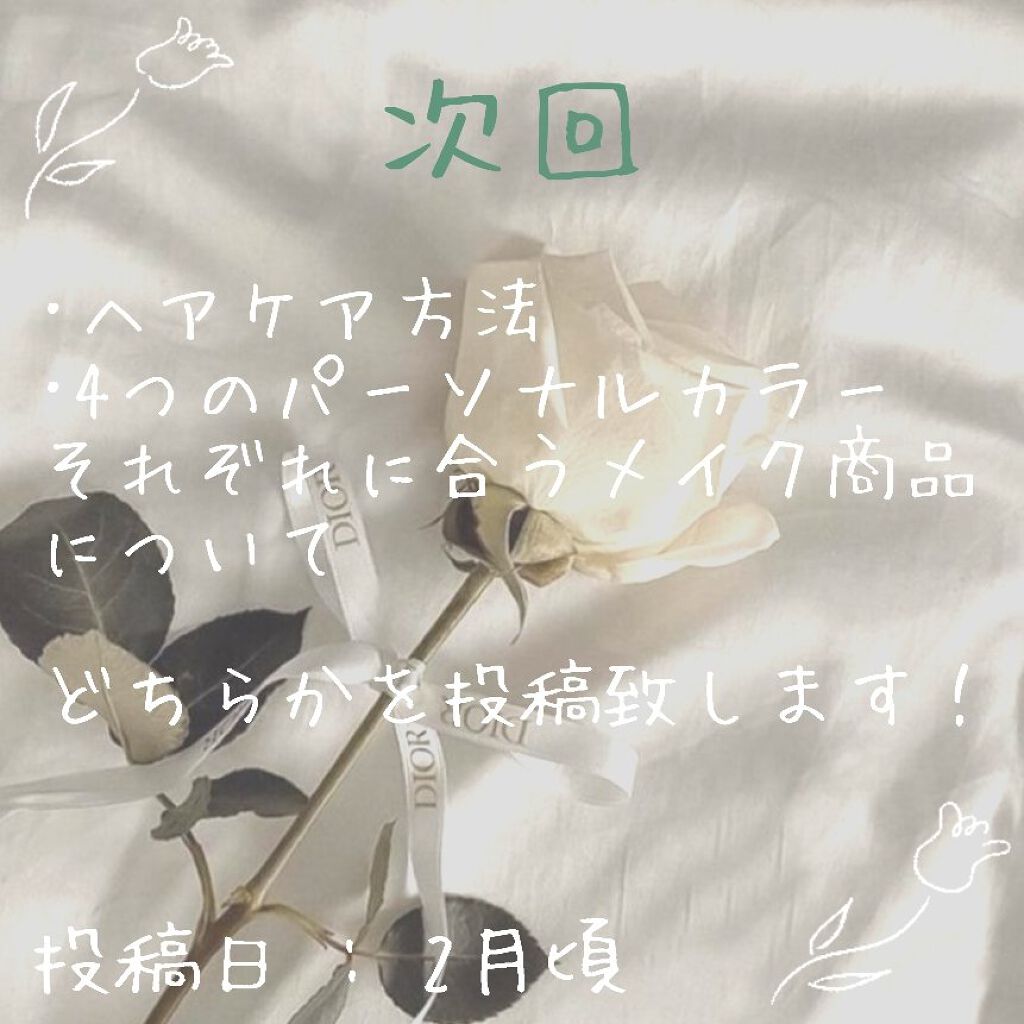 次回
・ヘアケア方法
・4つのパーソナルカラー
それぞれに合うメイク商品
について
どちらかを投稿致します！
投稿日 : 2月頃
DIOR
DIOR
DIOR